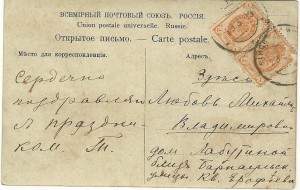 ВСЕМІРНЫЙ ПОЧТОВЫЙ СОЮЗЪ. РОССІЯ.
Union postale universelle. Russie.
Открытое письмо. — Carte postale.
Мѣсто для корреспонденціи.
Адресъ.
Сердечно
поздравляю
Л праздни
ком. Т.
Здѣсь
Любовь Михайл
Владимирово
дом Лабутиной
близъ
кв. Ерофѣева